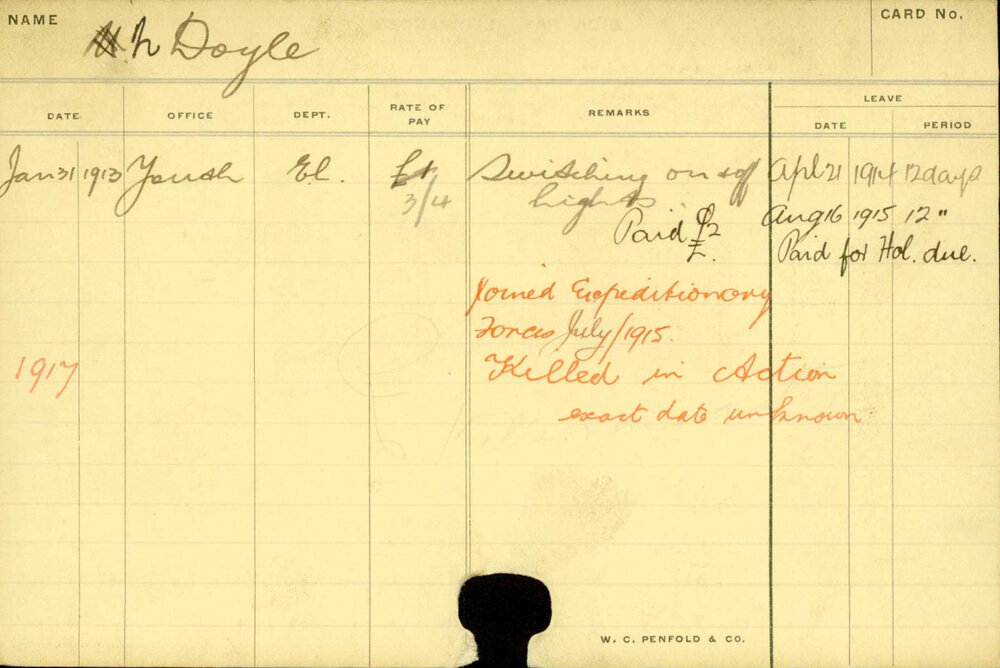 NAME
CARD No.
N Doyle
DATE
OFFICE
DEPT.
RATE OF PAY
REMARKS
LEAVE
DATE
PERIOD
Jan 31 1913 Youth El. £1 Switching on & off Apl 21 1914 12 days
3/4 Lights Aug 16 1915 12 "
Paid £2 Paid for Hol. due.
£.
Joined Expeditionary
Forces July/1915.
1917 Killed in Action
exact date unknown
W. C. PENFOLD & CO.